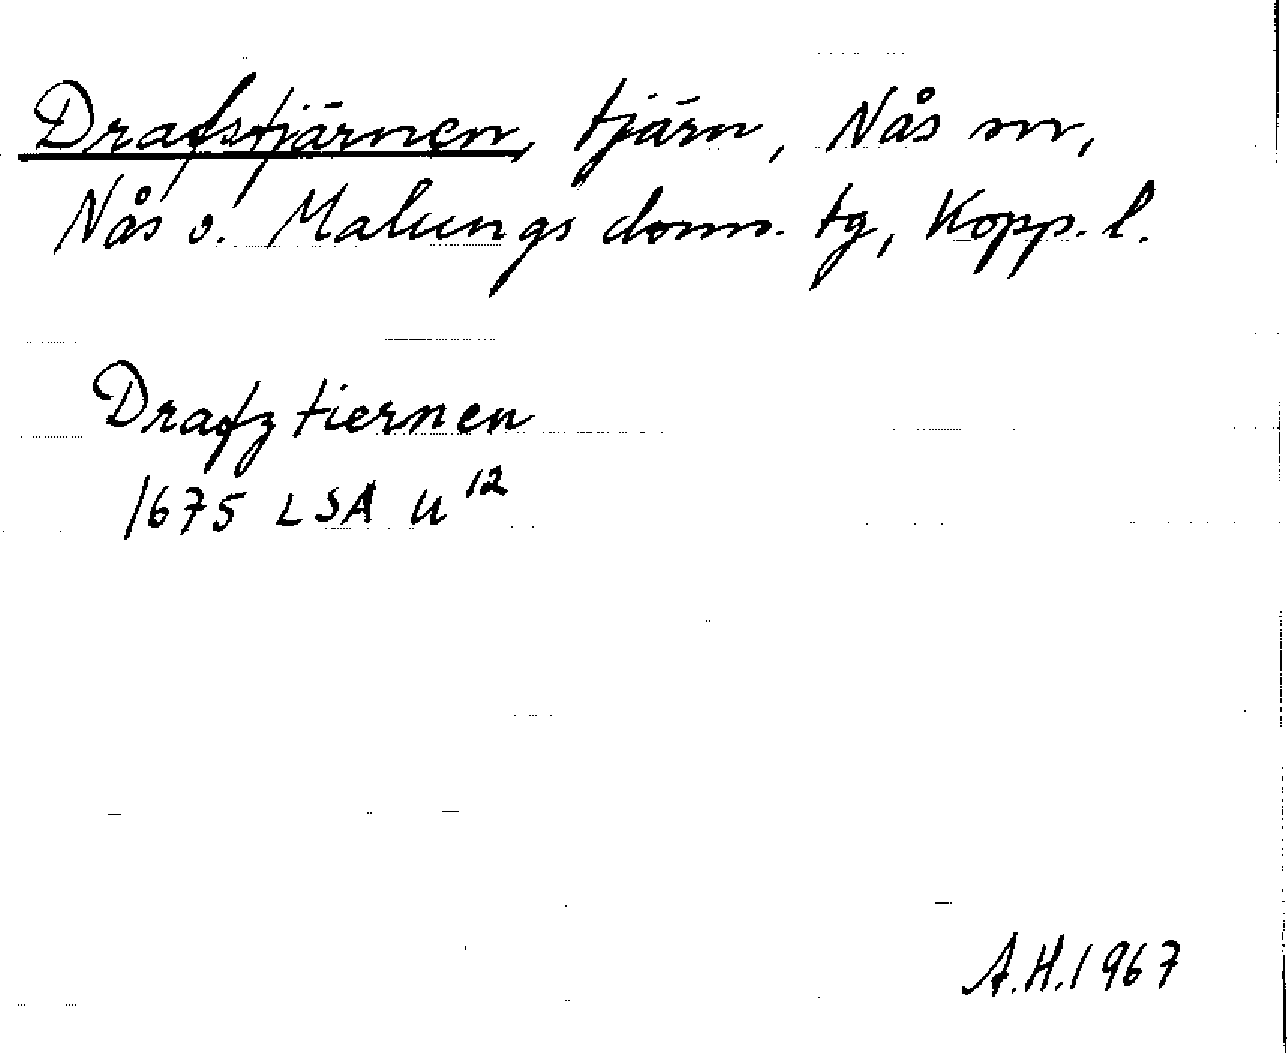 Drafstjärnen, tjärn, Nås sn,
Nås o. Malungs doms. tg, Kopp. l.
Drafztiernen
1675 LSA U 12
A.H. 1967